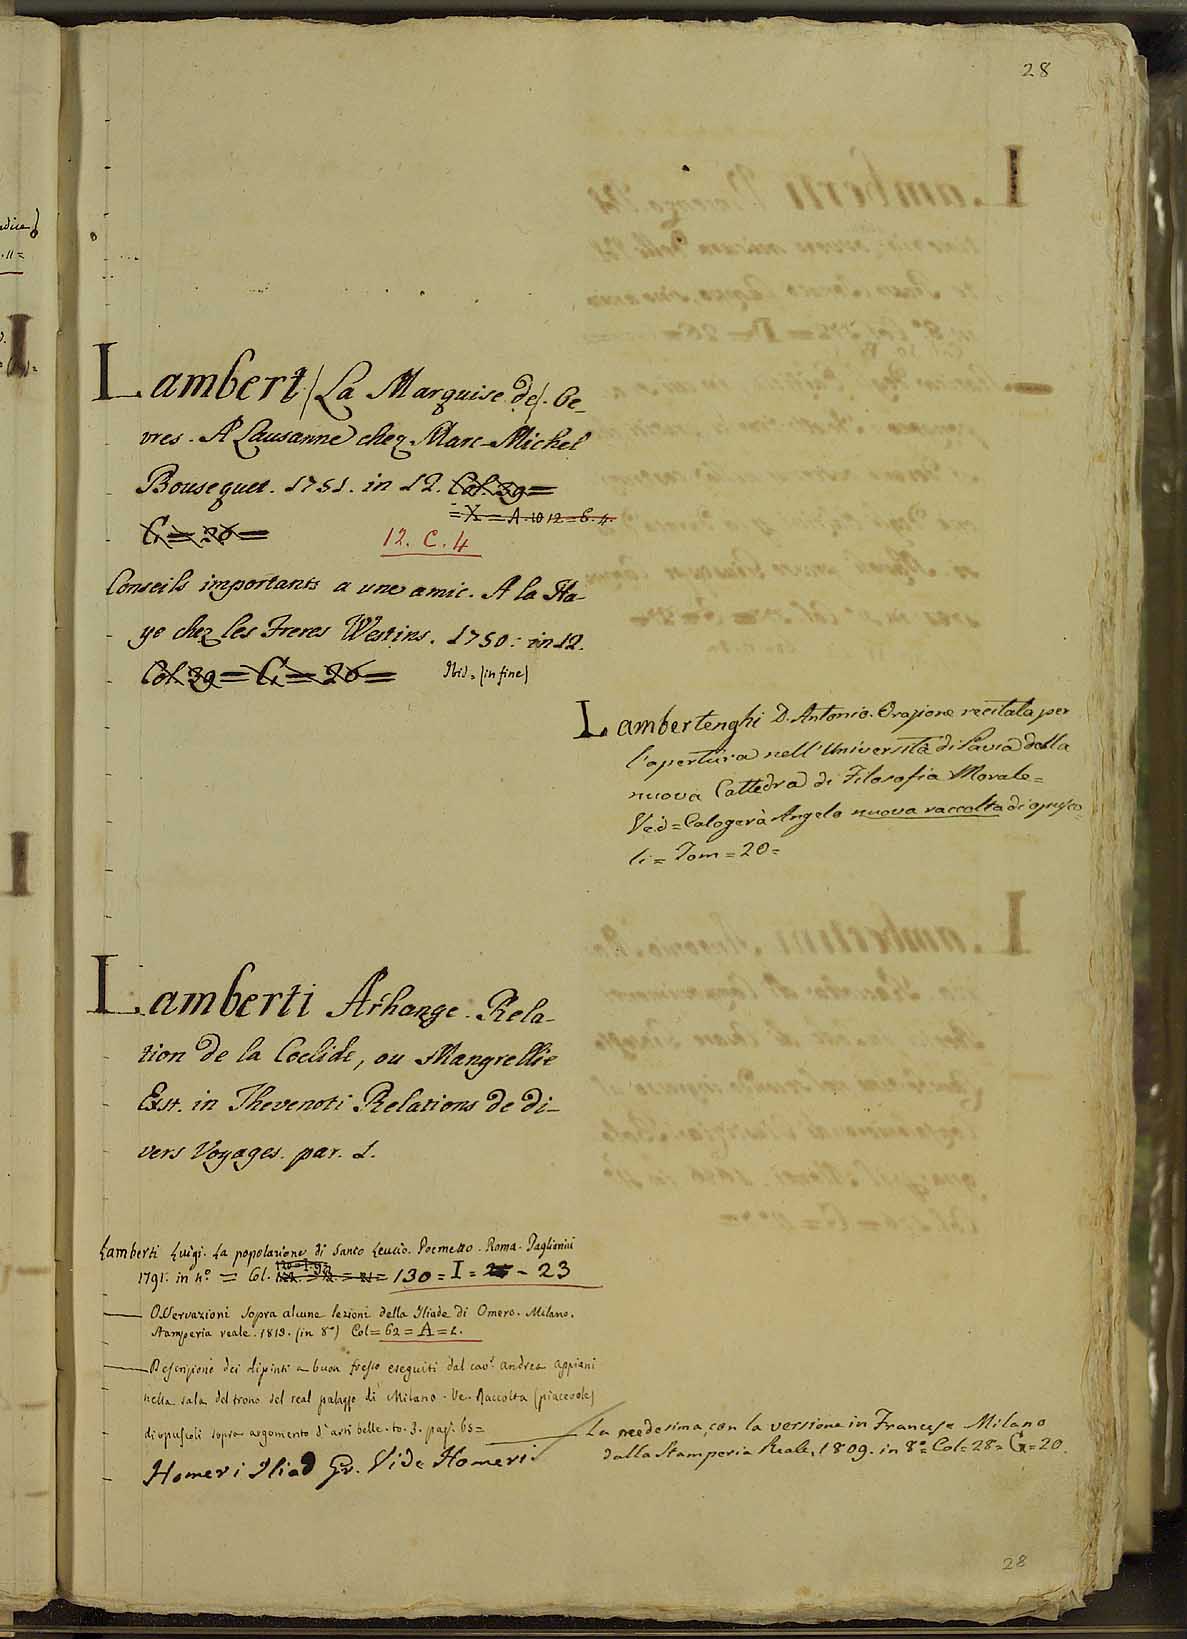 28
Lambert (La Marquise de). Oe-
vres. A Lausanne chez Marc-Michel
Bousequet. 1751. in 12. Col. 39 =
= X = A. 10 12 = C. 4.
G = 20 =
12. C. 4
Conseils importants a une amie. A la Ha-
ye chez les Freres Westins. 1750. in 12.
Col. 39 = G = 20 = Ibid. (in fine)
Lambertenghi D. Antonio. Orazione recitata per
l'apertura nell'Università di Pavia della
nuova Cattedra di Filosofia Morale =
Ved = Calogerà Angelo nuova raccolta di opusco-
li = Tom = 20 =
Lamberti Arhange. Rela-
tion de la Coclide, ou Mangrellie
Ext. in Thevenoti Relations de di-
vers Voyages. par. 1.
Lamberti Luigi. La popolazione di Santo Leucio. Poemetto. Roma. Paglierini
1791. in 4.º = Col. 130 = I = - 23
Osservazioni sopra alcune lezioni della Iliade di Omero. Milano.
Stamperia reale. 1813. (in 8.º) Col = 62 = A = 1.
Descrizione dei dipinti a buon fresco eseguiti dal cav.r Andrea Appiani
nella sala del trono del real palazzo di Milano. Ve. Raccolta (piacevole)
di opuscoli sopra argomento d'arti belle. to. 3. pag. 65 =
La medesima, con la versione in Francese Milano
dalla Stamperia Reale, 1809. in 8.º Col = 28 = G = 20.
Homeri Iliad Gr. Vide Homeri
28